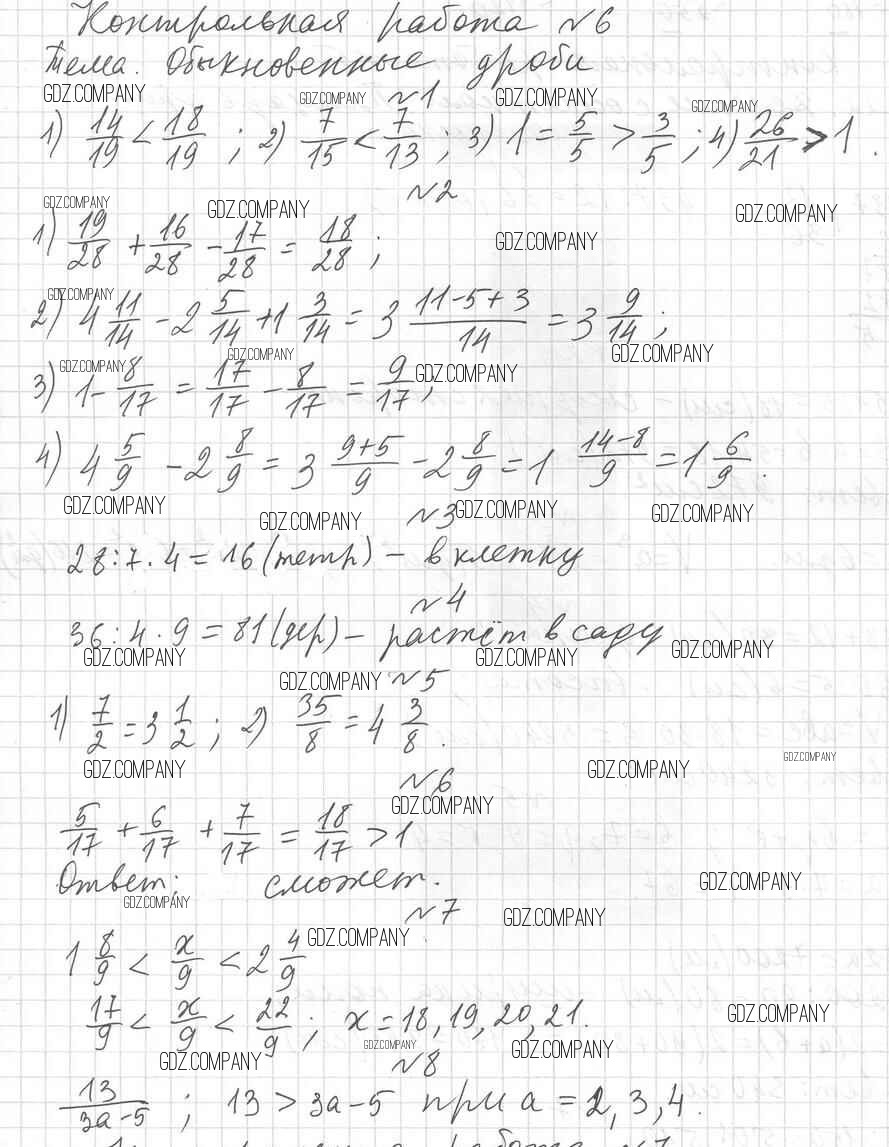 Контрольная работа №6
Тема. Обыкновенные дроби
GDZ.COMPANY GDZ.COMPANY №1 GDZ.COMPANY GDZ.COMPANY
1) 14/19 < 18/19 ; 2) 7/15 < 7/13 ; 3) 1 = 5/5 > 3/5 ; 4) 26/21 > 1 .
№2
GDZ.COMPANY GDZ.COMPANY GDZ.COMPANY GDZ.COMPANY
1) 19/28 + 16/28 - 17/28 = 18/28 ;
GDZ.COMPANY
2) 4 11/14 - 2 5/14 + 1 3/14 = 3 (11-5+3)/14 = 3 9/14 ;
GDZ.COMPANY GDZ.COMPANY GDZ.COMPANY GDZ.COMPANY
3) 1 - 8/17 = 17/17 - 8/17 = 9/17 ;
4) 4 5/9 - 2 8/9 = 3 (9+5)/9 - 2 8/9 = 1 (14-8)/9 = 1 6/9 .
GDZ.COMPANY GDZ.COMPANY №3 GDZ.COMPANY GDZ.COMPANY
28:7·4=16 (тетр) - в клетку
№4
36:4·9=81 (дер) - растёт в саду
GDZ.COMPANY GDZ.COMPANY GDZ.COMPANY
GDZ.COMPANY №5
1) 7/2 = 3 1/2 ; 2) 35/8 = 4 3/8 .
GDZ.COMPANY GDZ.COMPANY GDZ.COMPANY
№6
GDZ.COMPANY
5/17 + 6/17 + 7/17 = 18/17 > 1
Ответ: сможет. GDZ.COMPANY
GDZ.COMPANY №7 GDZ.COMPANY
GDZ.COMPANY
1 8/9 < x/9 < 2 4/9
17/9 < x/9 < 22/9 ; x = 18, 19, 20, 21. GDZ.COMPANY
GDZ.COMPANY GDZ.COMPANY GDZ.COMPANY
№8
13/(3a-5) ; 13 > 3a-5 при a = 2, 3, 4.